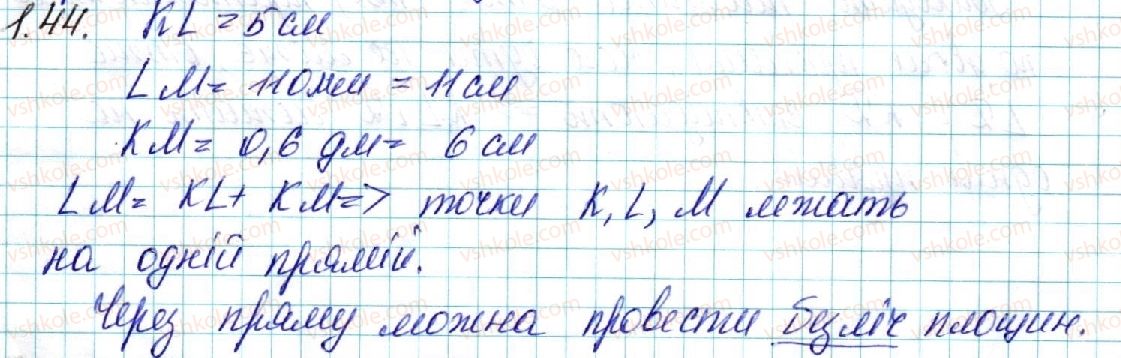 1.44. KL = 5 см
LM = 110 мм = 11 см
KM = 0,6 дм = 6 см
LM = KL + KM => точки K, L, M лежать
на одній прямій.
Через пряму можна провести безліч площин.